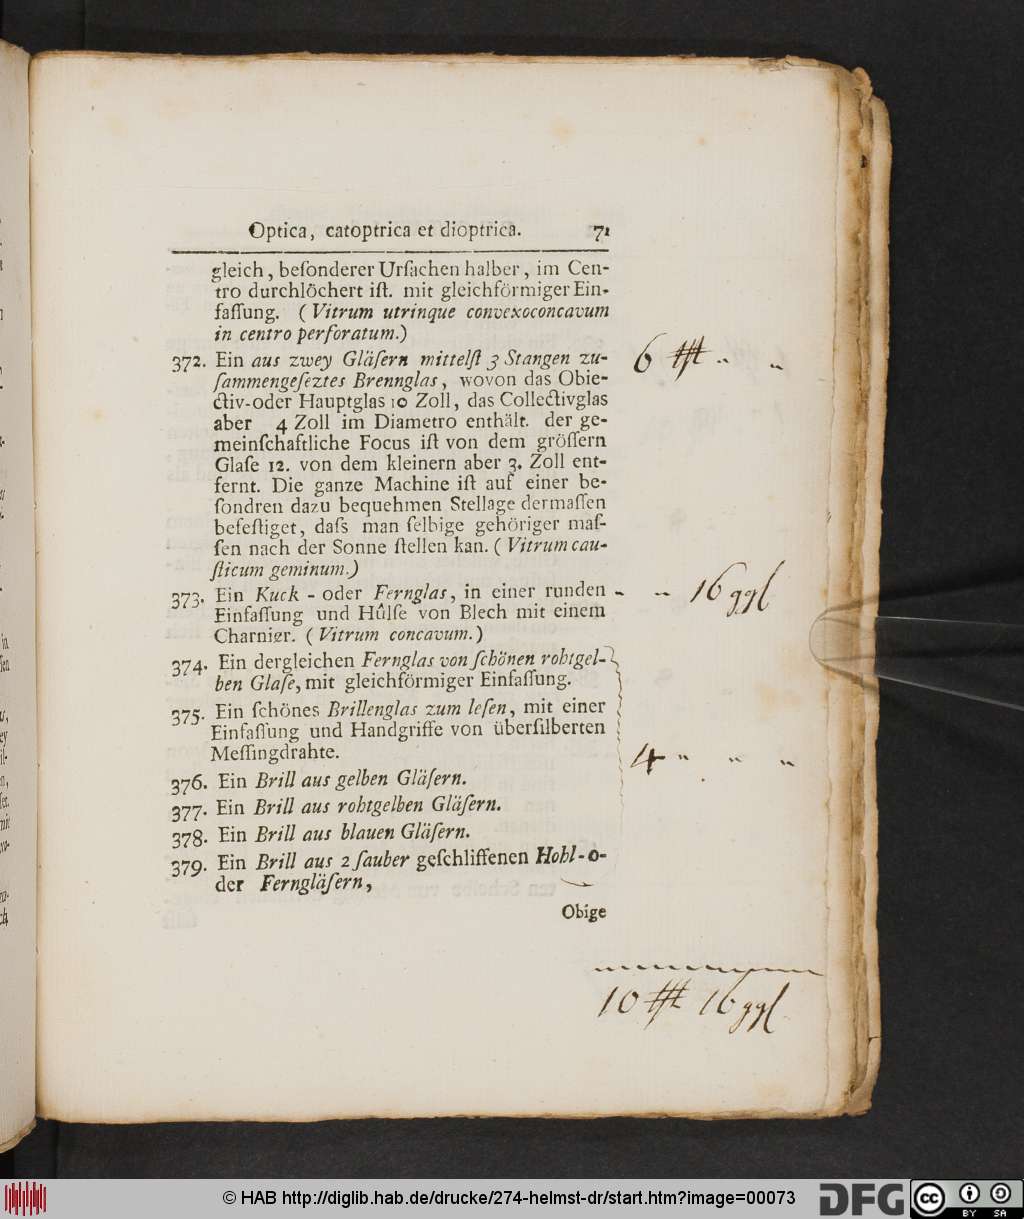 Optica, catoptrica et dioptrica. 71
gleich, beſonderer Urſachen halber, im Cen-
tro durchlöchert iſt. mit gleichförmiger Ein-
faſſung. (Vitrum utrinque convexoconcavum
in centro perforatum.)
372. Ein aus zwey Gläſern mittelſt 3 Stangen zu-
ſammengeſeztes Brennglas, wovon das Obie-
ctiv-oder Hauptglas 10 Zoll, das Collectivglas
aber 4 Zoll im Diametro enthält. der ge-
meinſchaftliche Focus iſt von dem gröſſern
Glaſe 12. von dem kleinern aber 3. Zoll ent-
fernt. Die ganze Machine iſt auf einer be-
ſondren dazu bequehmen Stellage dermaſſen
befeſtiget, daſs man ſelbige gehöriger maſ-
ſen nach der Sonne ſtellen kan. (Vitrum cau-
ſticum geminum.)
6 " "
373. Ein Kuck-oder Fernglas, in einer runden
Einfaſſung und Hûlſe von Blech mit einem
Charnier. (Vitrum concavum.)
" " 16 ggl
374. Ein dergleichen Fernglas von ſchönen rohtgel-
ben Glaſe, mit gleichförmiger Einfaſſung.
375. Ein ſchönes Brillenglas zum leſen, mit einer
Einfaſſung und Handgriffe von überſilberten
Meſſingdrahte.
376. Ein Brill aus gelben Gläſern.
377. Ein Brill aus rohtgelben Gläſern.
378. Ein Brill aus blauen Gläſern.
379. Ein Brill aus 2 ſauber geſchliffenen Hohl-o-
der Ferngläſern,
4 " " "
Obige
10 16 ggl
© HAB http://diglib.hab.de/drucke/274-helmst-dr/start.htm?image=00073
DFG
cc BY SA